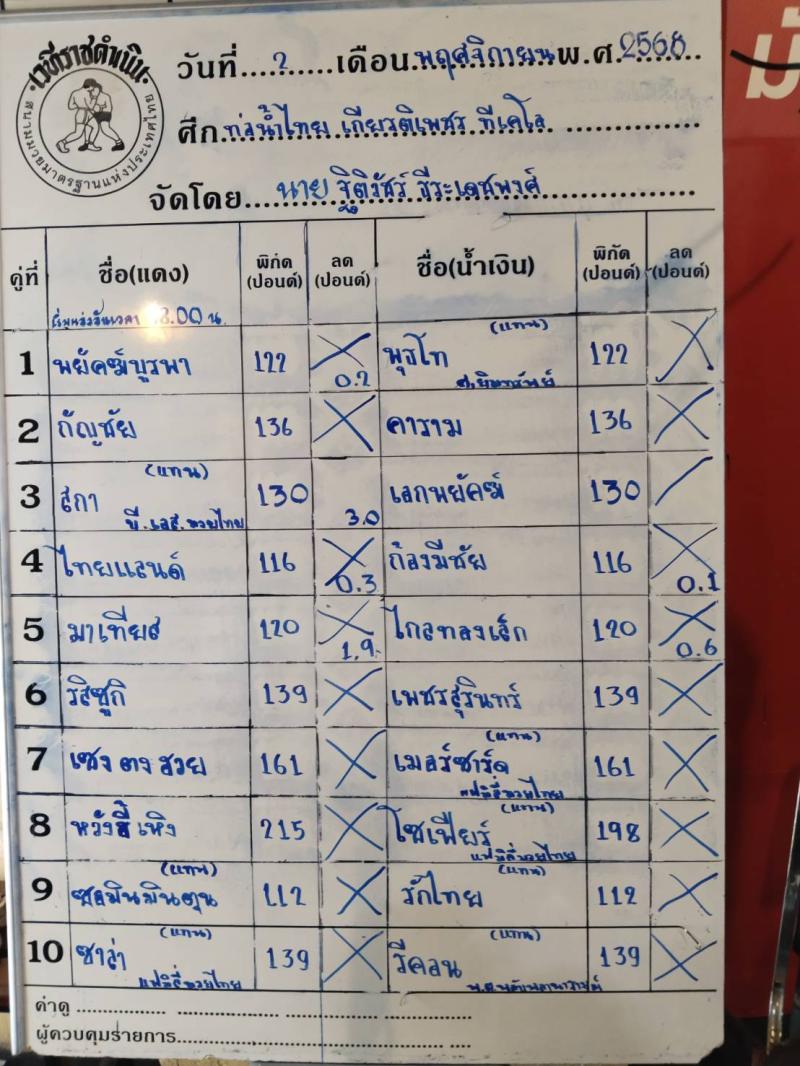 เวทีราชดำเนิน
สนามมวยมาตรฐานแห่งประเทศไทย
วันที่....2.....เดือน.พฤศจิกายน พ.ศ.2568
ศึก.ท่อน้ำไทย เกียรติเพชร ทีเคโอ
จัดโดย....นาย ฐิติวัชร์ ธีระเดชพงศ์
คู่ที่ ชื่อ(แดง) พิกัด (ปอนด์) ลด (ปอนด์) ชื่อ(น้ำเงิน) พิกัด (ปอนด์) ลด (ปอนด์)
8.00 น.
1 พยัคฆ์บูรพา 122 0.2 พุธโท (แทน) 122
2 กัญชัย 136 คาราม 136
3 สกา (แทน) บี.เอส.มวยไทย 130 3.0 เลกพยัคฆ์ 130
4 ไทยแลนด์ 116 0.3 ก้องมีชัย 116 0.1
5 มาเทียส 120 1.9 ไกลทองเล็ก 120 0.6
6 ริสซูกิ 139 เพชรสุรินทร์ 139
7 เซง ตง สวย 161 เมอร์ซาร์ด (แทน) แฟมิลี่มวยไทย 161
8 หวังลี่ เหิง 215 โซเฟียร์ (แทน) แฟมิลี่มวยไทย 198
9 ซอมินมินตุน (แทน) 112 รักไทย (แทน) 112
10 ซาล่า (แทน) แฟมิลี่มวยไทย 139 รีคอน (แทน) 139
ค่าดู
ผู้ควบคุมรายการ